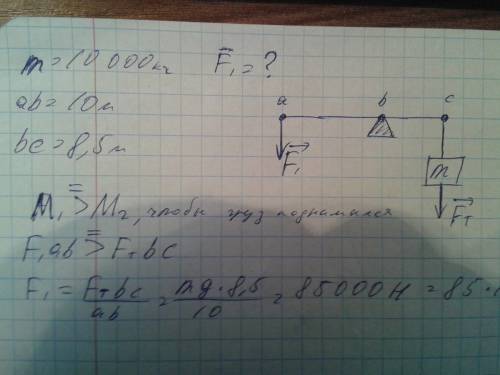 m = 10 000 кг   F₁ = ?
ab = 10 м
bc = 8,5 м
a b c
F₁
m
Fт
M₁ ⩾ M₂, чтобы груз поднимался
F₁ab ⩾ Fтbc
F₁ = Fтbc/ab = mg·8,5/10 = 85000 Н = 85·